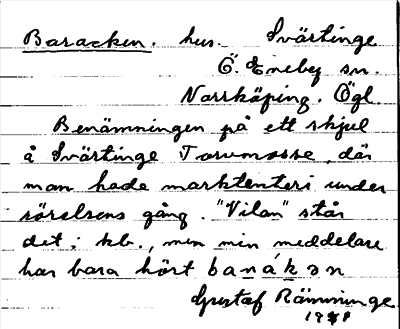 Baracken. hus. Svärtinge
Ö. Eneby sn.
Norrköping. Ögl.
Benämningen på ett skjul
å Svärtinge Torvmosse, där
man hade marktenteri under
rörelsens gång. "Vilan" står
det i kb., men min meddelare
har bara hört banákən
Gustaf Ramminge